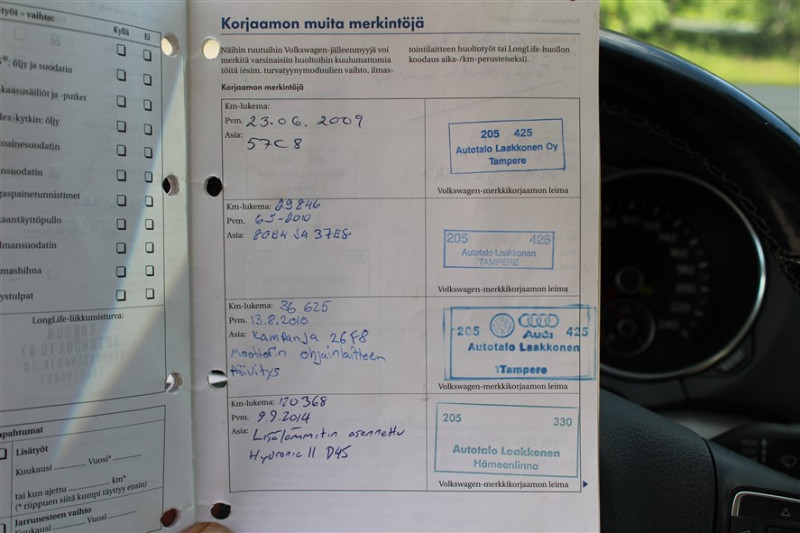 työt – vaihto:
Kyllä Ei
öljy ja suodatin
kaasusäiliöt ja -putket
dex-kytkin: öljy
toainesuodatin
nsuodatin
gaspainetunnistimet
kaantäyttöpullo
lmansuodatin
mashihna
ystulpat
LongLife-liikkumisturva:
pahtumat
Lisätyöt
Kuukausi Vuosi*
tai kun ajettu km*
(* riippuen siitä kumpi täyttyy ensin)
Jarrunesteen vaihto
Kuukausi Vuosi
Korjaamon muita merkintöjä
Näihin ruutuihin Volkswagen-jälleenmyyjä voi
merkitä varsinaisiin huoltoihin kuulumattomia
töitä (esim. turvatyynymoduulien vaihto, ilmas-
tointilaitteen huoltotyöt tai LongLife-huollon
koodaus aika-/km-perusteiseksi).
Korjaamon merkintöjä
Km-lukema:
Pvm. 23.06.2009
Asia: 57C8
205 425
Autotalo Laakkonen Oy
Tampere
Volkswagen-merkkikorjaamon leima
Km-lukema: 29846
Pvm.
Asia: 37E8
205 425
Autotalo Laakkonen
TAMPERE
Volkswagen-merkkikorjaamon leima
Km-lukema: 36 625
Pvm. 13.8.2010
Asia: Kampanja 26F8
Moottorin ohjainlaitteen
päivitys
205 Audi 425
Autotalo Laakkonen
Tampere
Volkswagen-merkkikorjaamon leima
Km-lukema: 120368
Pvm. 9.9.2014
Asia: Lisälämmitin asennettu
Hydronic II D4S
205 330
Autotalo Laakkonen
Hämeenlinna
Volkswagen-merkkikorjaamon leima